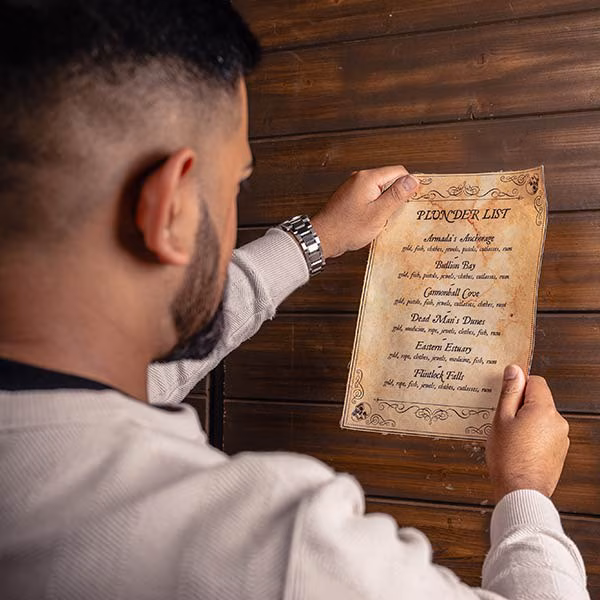 PLUNDER LIST
Armada's Anchorage
gold, fish, clothes, jewels, pistols, cutlasses, rum
Bullion Bay
gold, fish, pistols, jewels, clothes, cutlasses, rum
Cannonball Cove
gold, pistols, fish, jewels, cutlasses, clothes, rum
Dead Man's Dunes
gold, medicine, rope, jewels, clothes, fish, rum
Eastern Estuary
gold, rope, clothes, jewels, medicine, fish, rum
Flintlock Falls
gold, rope, fish, jewels, clothes, cutlasses, rum